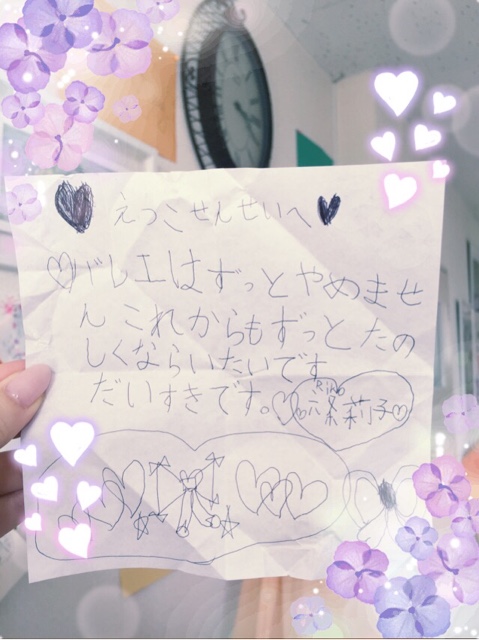 えつこせんせいへ
バレエはずっとやめませ
ん これからもずっと たの
しくならいたいです
だいすきです。
Riko
六条莉子